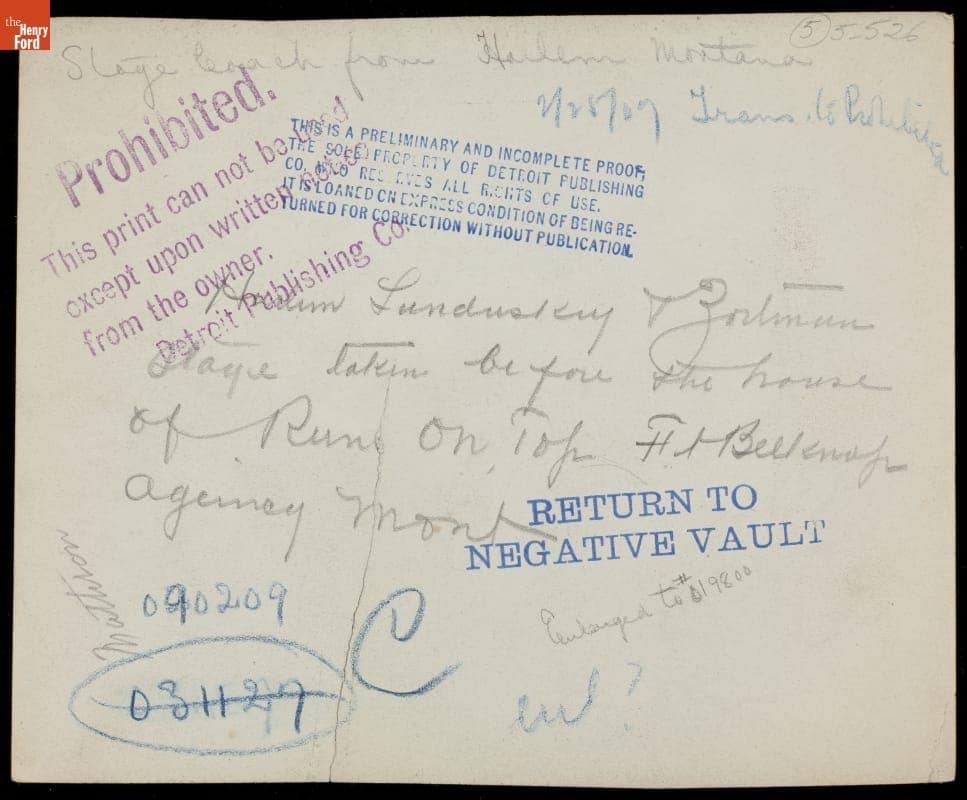 the
Henry
Ford
5 5-526
Stage Coach from Harlem Montana
Trans. to Prohibited
Prohibited.
This print can not be used
except upon written
from the owner.
Detroit Publishing Co.
THIS IS A PRELIMINARY AND INCOMPLETE PROOF,
THE SOLE PROPERTY OF DETROIT PUBLISHING
CO. WHO RESERVES ALL RIGHTS OF USE.
IT IS LOANED ON EXPRESS CONDITION OF BEING RE-
TURNED FOR CORRECTION WITHOUT PUBLICATION.
Landuskey & Zortman
Stage taken before the house
of Runs On Top Ft Belknap
Agency Mont
RETURN TO
NEGATIVE VAULT
Enlarged to # 019800
090209
C
031127